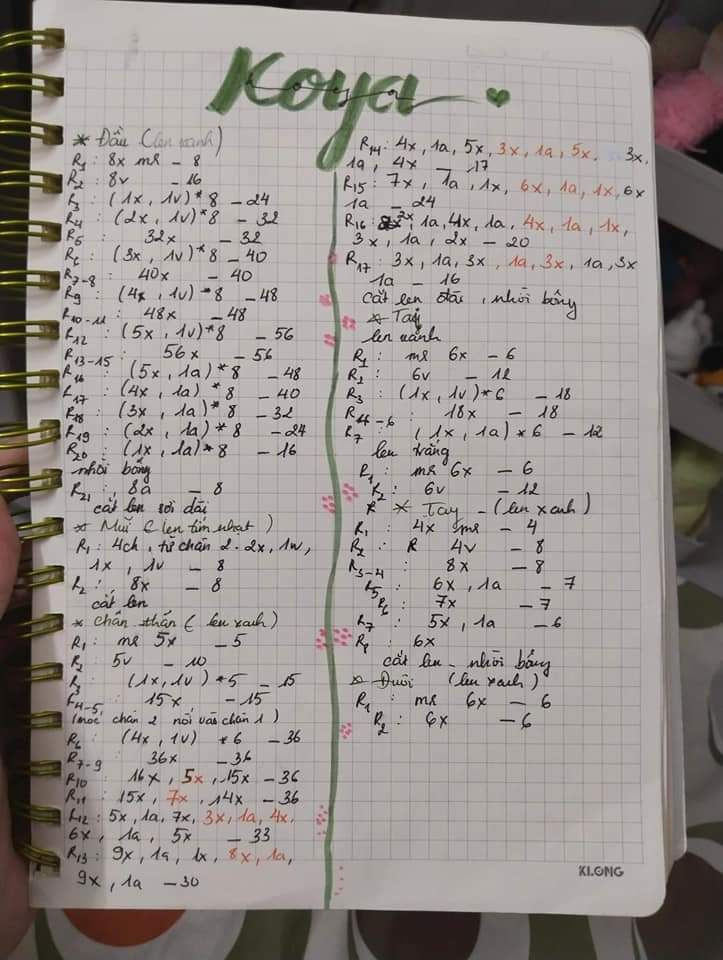 Koya
* Đầu (len xanh)
R1: 8x ms - 8
R2: 8v - 16
R3: (1x, 1v)*8 - 24
R4: (2x, 1v)*8 - 32
R5: 32x - 32
R6: (3x, 1v)*8 - 40
R7-8: 40x - 40
R9: (4x, 1v)*8 - 48
R10-11: 48x - 48
R12: (5x, 1v)*8 - 56
R13-15: 56x - 56
R16: (5x, 1a)*8 - 48
R17: (4x, 1a)*8 - 40
R18: (3x, 1a)*8 - 32
R19: (2x, 1a)*8 - 24
R20: (1x, 1a)*8 - 16
nhồi bông
R21: 8a - 8
cắt len sợi dài
* Mũi (len tím nhạt)
R1: 4ch, từ chân 2. 2x, 1w,
1x, 1v - 8
R2: 8x - 8
cắt len
* Chân thân (len xanh)
R1: ms 5x - 5
R2: 5v - 10
R3: (1x, 1v)*5 - 15
R4-5: 15x - 15
(móc chân 2 nối vào chân 1)
R6: (4x, 1v)*6 - 36
R7-9: 36x - 36
R10: 16x, 5x, 15x - 36
R11: 15x, 7x, 14x - 36
R12: 5x, 1a, 7x, 3x, 1a, 4x,
6x, 1a, 5x - 33
R13: 9x, 1a, 1x, 8x, 1a,
9x, 1a - 30
R14: 4x, 1a, 5x, 3x, 1a, 5x, 3x,
1a, 4x - 17
R15: 7x, 1a, 1x, 6x, 1a, 1x, 6x
1a - 24
R16: 2x, 1a, 4x, 1a, 4x, 1a, 1x,
3x, 1a, 2x - 20
R17: 3x, 1a, 3x, 1a, 3x, 1a, 3x
1a - 16
cắt len dài, nhồi bông
* Tay
len xanh
R1: ms 6x - 6
R2: 6v - 12
R3: (1x, 1v)*6 - 18
R4-6: 18x - 18
R7: (1x, 1a)*6 - 12
len trắng
R1: ms 6x - 6
R2: 6v - 12
* Tay - (len xanh)
R1: 4x ms - 4
R2: R 4v - 8
R3-4: 8x - 8
R5: 6x, 1a - 7
R6: 7x - 7
R7: 5x, 1a - 6
R8: 6x
cắt len - nhồi bông
* Đuôi (len xanh)
R1: ms 6x - 6
R2: 6x - 6
KLONG